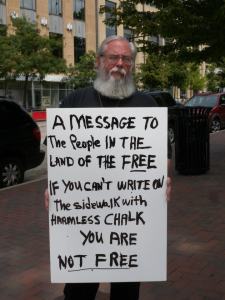 A MESSAGE TO
The People IN THE
LAND OF THE FREE
IF YOU CAN'T WRITE ON
The sidewalk with
HARMLESS CHALK
YOU ARE
NOT FREE